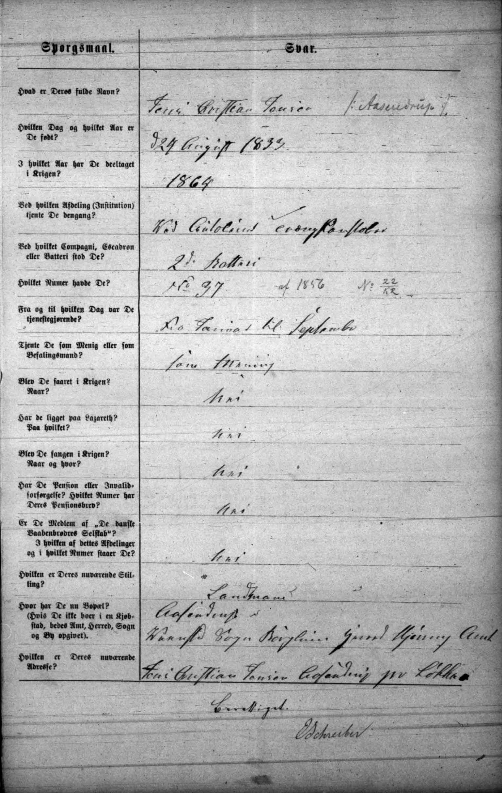 Spørgsmaal. Svar.
Hvad er Deres fulde Navn?
Jens Christian Jensen
Hvilken Dag og hvilket Aar er
De født?
d 24 August 1833
I hvilket Aar har De deeltaget
i Krigen?
1864
Ved hvilken Afdeling (Institution)
tjente De dengang?
Ved
Ved hvilket Compagni, Escadron
eller Batteri stod De?
2de Batteri
Hvilket Numer havde De?
No 37 af 1856 No 22/52
Fra og til hvilken Dag var De
tjenestegjørende?
Fra Januar til September
Tjente De som Menig eller som
Befalingsmand?
som Mening
Blev De saaret i Krigen?
Naar?
Nei
Har de ligget paa Lazareth?
Paa hvilket?
Nei
Blev De fangen i Krigen?
Naar og hvor?
Nei
Har De Pension eller Invalid-
forsørgelse? Hvilket Numer har
Deres Pensionsbrev?
Nei
Er De Medlem af „De danske
Vaabenbrødres Selskab“?
I hvilken af dettes Afdelinger
og i hvilket Numer staaer De?
Nei
Hvilken er Deres nuværende Stil-
ling?
Landmand
Hvor har De nu Bopæl?
(Hvis De ikke boer i en Kjøb-
stad, bedes Amt, Herred, Sogn
og By opgivet).
Aasendrup
Sogn Børglum Herred Hjøring Amt
Hvilken er Deres nuværende
Adresse?
Jens Christian Jensen Aasendrup pr Løkken
Berettiget.
E Schreiber